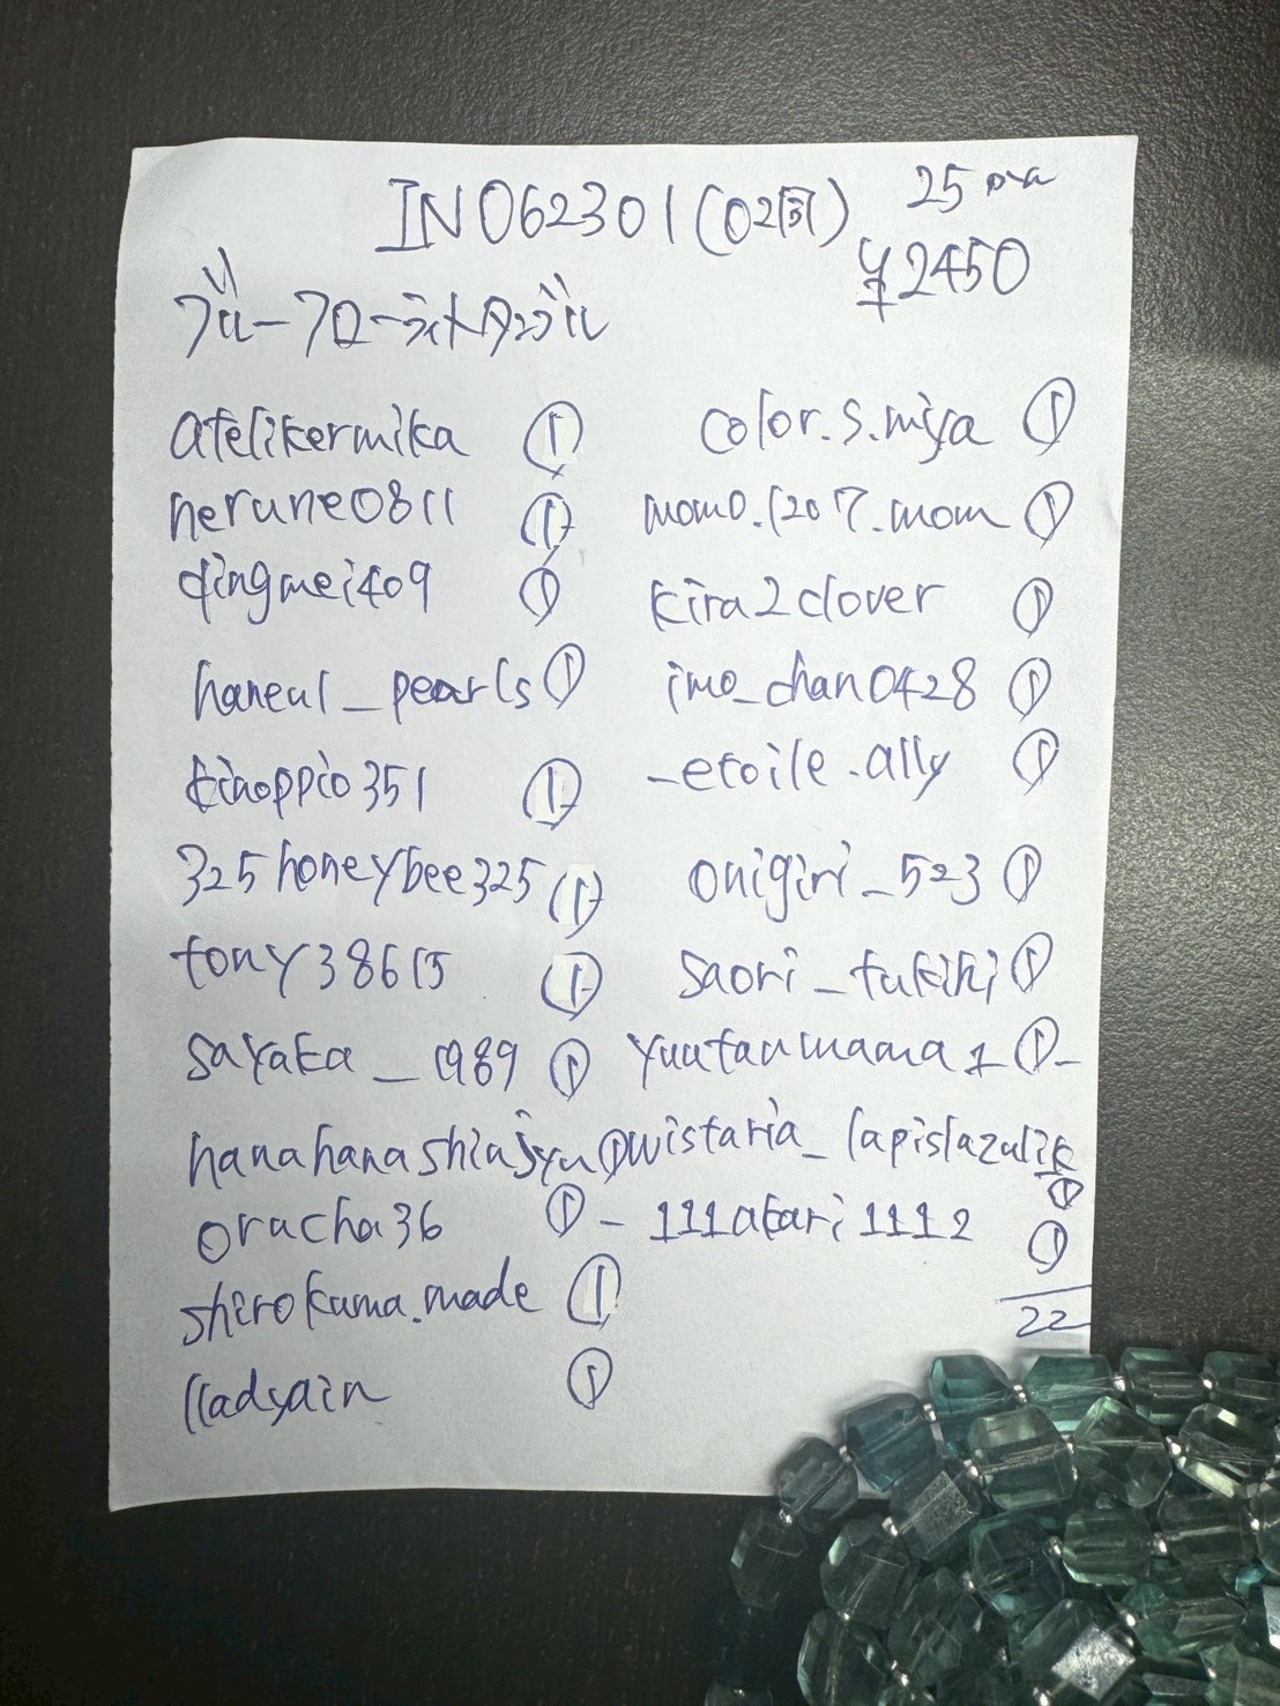 IN062301(02雨) 25
¥2450
ブルーフローライトタンブル
atelikermika ① color.s.miya ①
nerune0811 ① momo.1207.mom ①
qingmei409 ① kira2clover ①
haneul_pearls ① imo_chan0428 ①
kinoppio351 ① _etoile.ally ①
325honeybee325 ① onigiri_523 ①
tony38615 ① saori_tukihi ①
sayaka_1989 ① yuutanmama1 ①
hanahanashinjyu ① wistaria_lapislazulik ①
oracha36 ① 111akari1112 ①
shirokuma.made ① 22
lladyain ①